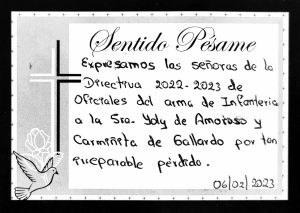 Sentido Pésame
Expresamos las señoras de la
Directiva 2022-2023 de
Oficiales del arma de Infantería
a la Sra. Yoly de Amoroso y
Carmiñita de Gallardo por tan
irreparable pérdido.
06/02/2023